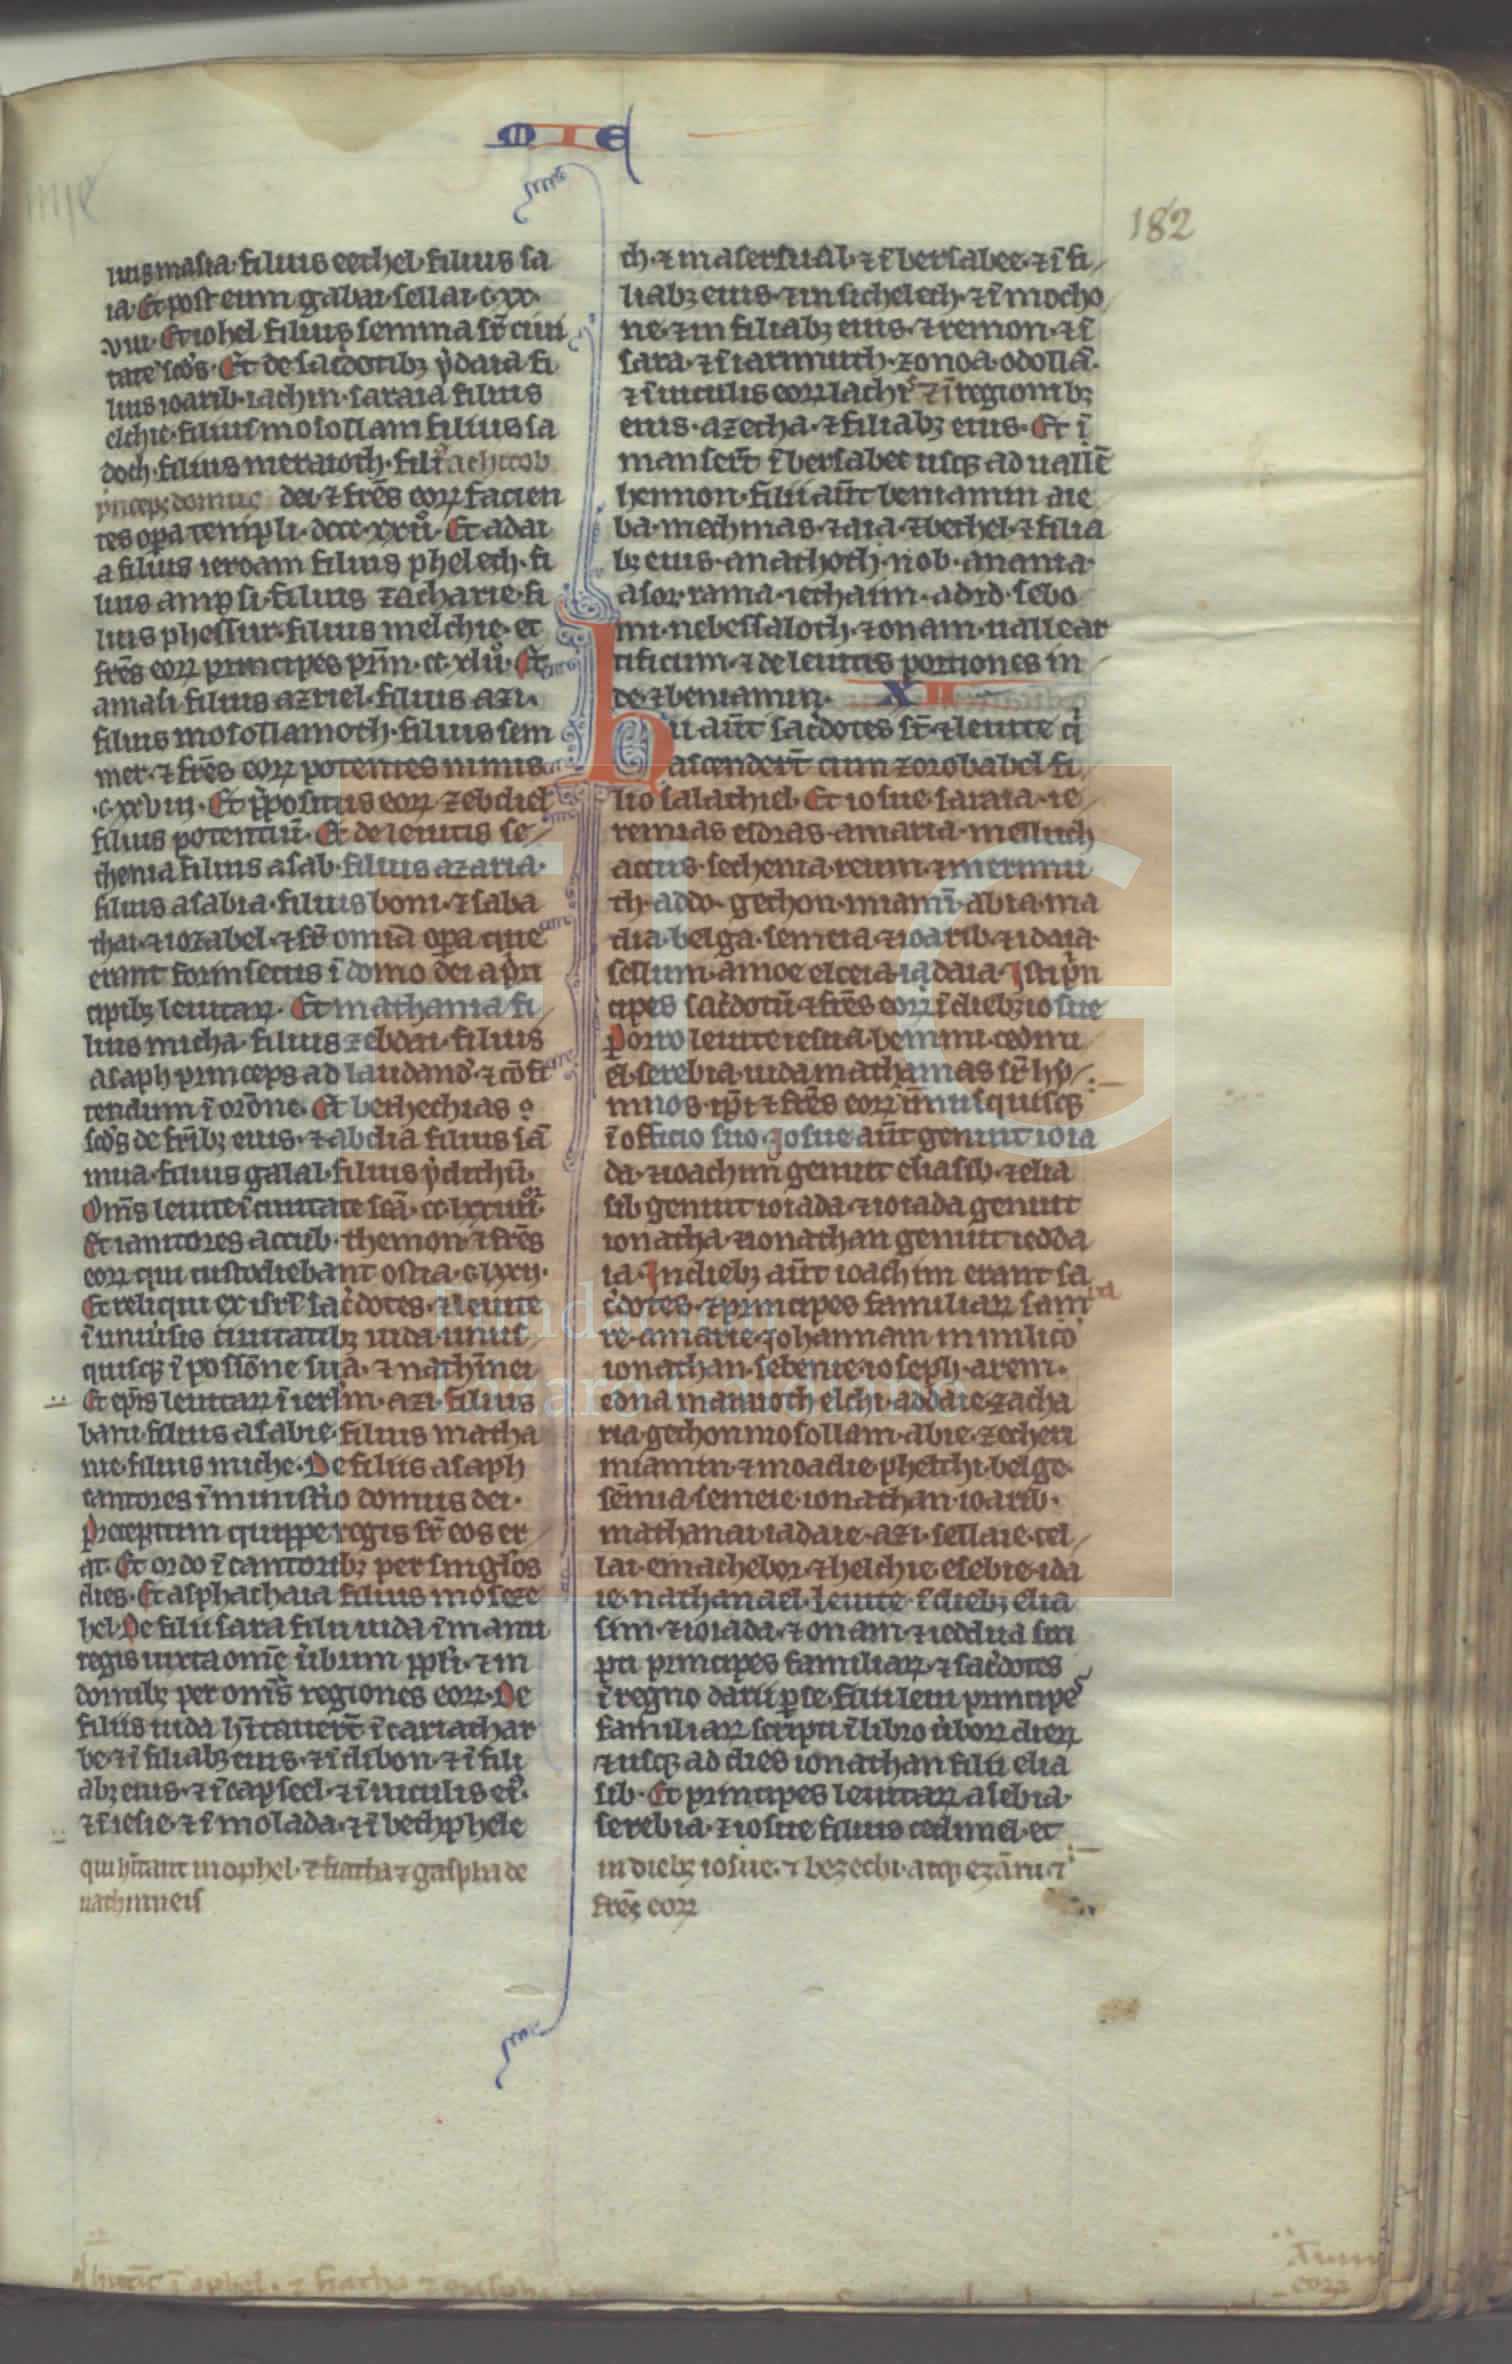 MIE
182
luis masia· filius eethel· filius sa
ia· Et post eum gabai· sellai· c· xx·
viii· Et iohel filius semma sr̄ ciui
tatē scd̄s· Et de sac̄dotibȝ ydaia fi
lius ioarib· iachin· saraia filius
elchie· filius mosollam filius sa
doch· filius meraioth· filiꝰ achitob
p̄nceps domus dei· ⁊ fr̄es eoꝝ facien
tes oꝑa templi· dccc· xxii· Et adai
a filius ieroam filius phelech· fi
lius ampsi· filius zacharie· fi
lius phessur· filius melchie· et
fr̄es eoꝝ principes pr̄m· cc· xlii· Et
amasi filius azriel· filius azi·
filius mosollamoth· filius sem
mer· ⁊ fr̄es eoꝝ potentes nimis
·c·xxviii· Et p̄positus eoꝝ zebdiel
filius potentiū· Et de leuitis se
chenia filius asab· filius azaria·
filius asabia· filius boni· ⁊ saba
thai· ⁊ iozabel· ⁊ sr̄ om̄ia oꝑa que
erant forinsecus ī domo dei a p̄n
cipibȝ leuitaꝝ· Et mathania fi
lius micha· filius zebdai· filius
asaph princeps ad laudand̄· ⁊ 9fi
tendum ī or̄one· Et bethechias
scd̄s de fr̄ibȝ eius· ⁊ abdia filius sa
mua· filius galal· filius ydithū·
Om̄s leuite ī ciuitate sc̄a· cc· lxxxiiii·
Et ianitores accub· themon· ⁊ fr̄es
eoꝝ qui custodiebant ostia· c· lxxij·
Et reliqui ex isrl̄ sac̄dotes· ⁊ leuite
ī uniu̾sis ciuitatibȝ iuda· unus
quisqȝ ī possīone sua· ⁊ nathinei
Et ep̄s leuitaꝝ ī ierl̄m· azi· filius
bani· filius asabie· filius matha
nie· filius miche· De filiis asaph
cantores ī minist̄io domus dei·
p̄ceptum quippe regis sr̄ eos er
at· Et ordo ī cantoribȝ per singlos
dies· Et asphathaia filius moseze
bel· De filii sara filii iuda ī manu
regis iuxta omē ūbum ppl̄i· ⁊ in
domibȝ per om̄s regiones eoꝝ· De
filiis iuda h̄itauert̄ ī cariathar
be· ⁊ ī filiabȝ eius· ⁊ ī dibon· ⁊ ī fili
abȝ eius· ⁊ ī capseel· ⁊ ī uiculis eiꝰ·
⁊ ī iesue· ⁊ ī molada· ⁊ ī bethphele
qui h̄itant in ophel· ⁊ siacha ⁊ gaspha de
nathinneis
th· ⁊ masersual· ⁊ ī bersabee· ⁊ ī fi
liabȝ eius· ⁊ in sichelech· ⁊ ī mocho
ne· ⁊ in filiabȝ eius· ⁊ remon· ⁊ ī
sara· ⁊ ī iarmuth· zonoa· odollā·
⁊ ī uiculis eoꝝ lachis ⁊ ī regionibȝ
eius· azecha· ⁊ filiabȝ eius· Et ī
mansert̄ ī bersabee usqȝ ad uallē
hennon· filii aūt beniamin a ie
ba· mechmas· ⁊ aia· ⁊ bethel· ⁊ filia
bȝ eius· anathoth· nob· anania·
asor· rama· iethaim· adid· sebo
im· nebessaloth· ⁊ onam· ualle ar
tificum· ⁊ de leuitis portiones in
de ⁊ beniamin· XII
Hii aūt sac̄dotes sr̄· ⁊ leuite q̄
ascendert̄ cum zorobabel fi
lio salathiel· Et iosue· saraia· ie
remias esdras· amaria· melluch
accus· sechenia· reum· ⁊ mermu
th· addo· gethon· miamī· abia· ma
dia· belga· semeia· ⁊ ioarib· ⁊ idaia·
sellum· amoe elceia· iadaia· Isti p̄n
cipes sac̄dotū· ⁊ fr̄es eoꝝ ī diebȝ iosue
Porro leuite iesua· bennui· cedmi
el· serebia· iuda mathanias sr̄ hȳ
mnos· ip̄i ⁊ fr̄es eoꝝ un̄usquisqȝ
ī officio suo· Josue aūt genuit ioia
da· ⁊ ioachim genuit eliasib· ⁊ elia
sib genuit ioiada· ⁊ ioiada genuit
ionatha· ⁊ ionathan genuit iedda
ia· In diebȝ aūt ioachim erant sa
c̄dotes· ⁊ principes familiaꝝ sam
re· amarie· Johannam· in milico
ionathan· sebenie· ioseph· arem·
edna marauoth elchi· addaie· zacha
ria· gethon mosollam· abie· zecheri
miamin· ⁊ moadie· phelthi· belge·
sēmia· semeie· ionathan· ioarib·
mathanai· iadaie· azi· sellaie· cel
lai· emathebor· ⁊ helchie· esebie· ida
ie· nathanael· leuite· ī diebȝ elia
sim· ⁊ ioiada· ⁊ onam· ⁊ ieddua sc̄ri
pti principes familiaꝝ· ⁊ sac̄dotes
ī regno darii ꝑse· filii leui principes
familiaꝝ scripti ī libro ūboꝝ dieꝝ
⁊ usqȝ ad dies ionathan filii elia
sib· Et principes leuitaꝝ asebia·
serebia· ⁊ iosue filius cedmiel· et
in diebȝ iosue· ⁊ bezechi· atqȝ ezāni ⁊
fr̄es eoꝝ
FLG
Fundación
Lázaro Galdiano